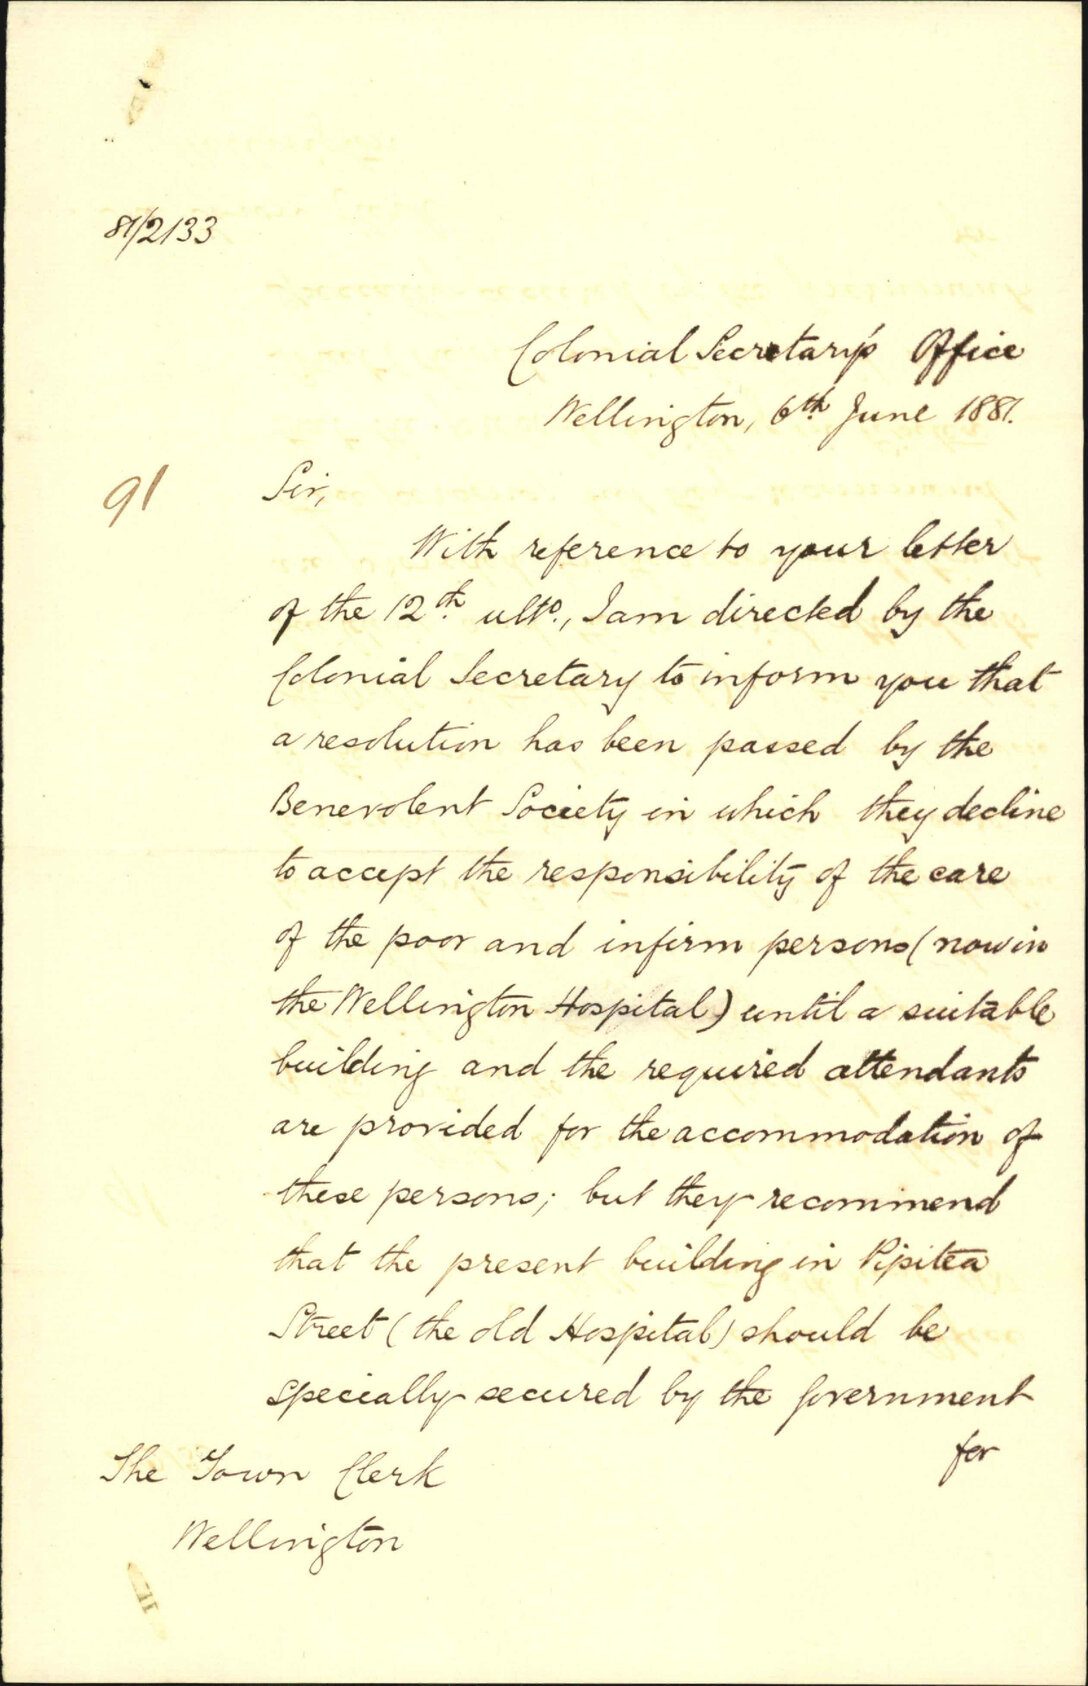 81/2133
Colonial Secretary's Office
Wellington, 6th June 1881.
91
Sir,
With reference to your letter
of the 12th ulto., I am directed by the
Colonial Secretary to inform you that
a resolution has been passed by the
Benevolent Society in which they decline
to accept the responsibility of the care
of the poor and infirm persons (now in
the Wellington Hospital) until a suitable
building and the required attendants
are provided for the accommodation of
these persons; but they recommend
that the present building in Pipitea
Street (the old Hospital) should be
specially secured by the Government
for
The Town Clerk
Wellington